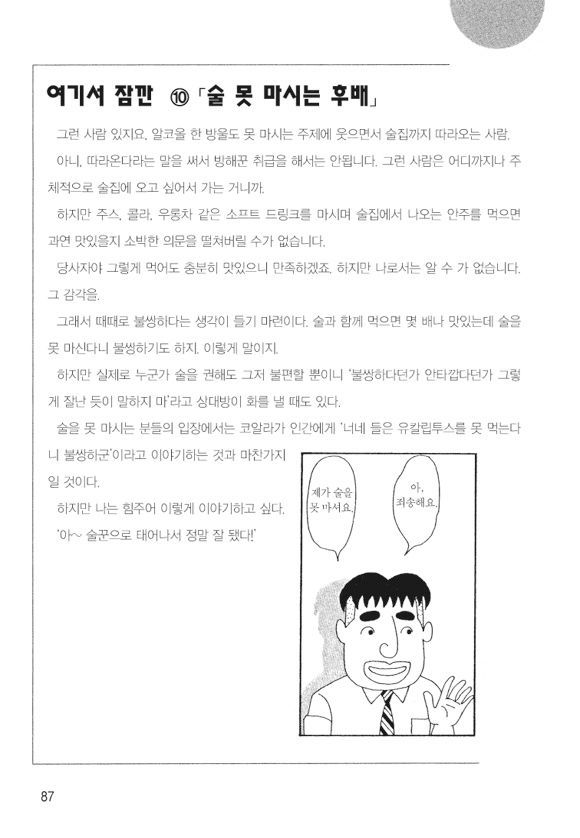 여기서 잠깐 ⑩ 「술 못 마시는 후배」
그런 사람 있지요, 알코올 한 방울도 못 마시는 주제에 웃으면서 술집까지 따라오는 사람.
아니, 따라온다라는 말을 써서 방해꾼 취급을 해서는 안됩니다. 그런 사람은 어디까지나 주
체적으로 술집에 오고 싶어서 가는 거니까.
하지만 주스, 콜라, 우롱차 같은 소프트 드링크를 마시며 술집에서 나오는 안주를 먹으면
과연 맛있을지 소박한 의문을 떨쳐버릴 수가 없습니다.
당사자야 그렇게 먹어도 충분히 맛있으니 만족하겠죠. 하지만 나로서는 알 수 가 없습니다.
그 감각을.
그래서 때때로 불쌍하다는 생각이 들기 마련이다. 술과 함께 먹으면 몇 배나 맛있는데 술을
못 마신다니 불쌍하기도 하지. 이렇게 말이지.
하지만 실제로 누군가 술을 권해도 그저 불편할 뿐이니 '불쌍하다던가 안타깝다던가 그렇
게 잘난 듯이 말하지 마'라고 상대방이 화를 낼 때도 있다.
술을 못 마시는 분들의 입장에서는 코알라가 인간에게 '너네 들은 유칼립투스를 못 먹는다
니 불쌍하군'이라고 이야기하는 것과 마찬가지
일 것이다.
하지만 나는 힘주어 이렇게 이야기하고 싶다.
'아~ 술꾼으로 태어나서 정말 잘 됐다!'
아,
죄송해요.
제가 술을
못 마셔요.
87